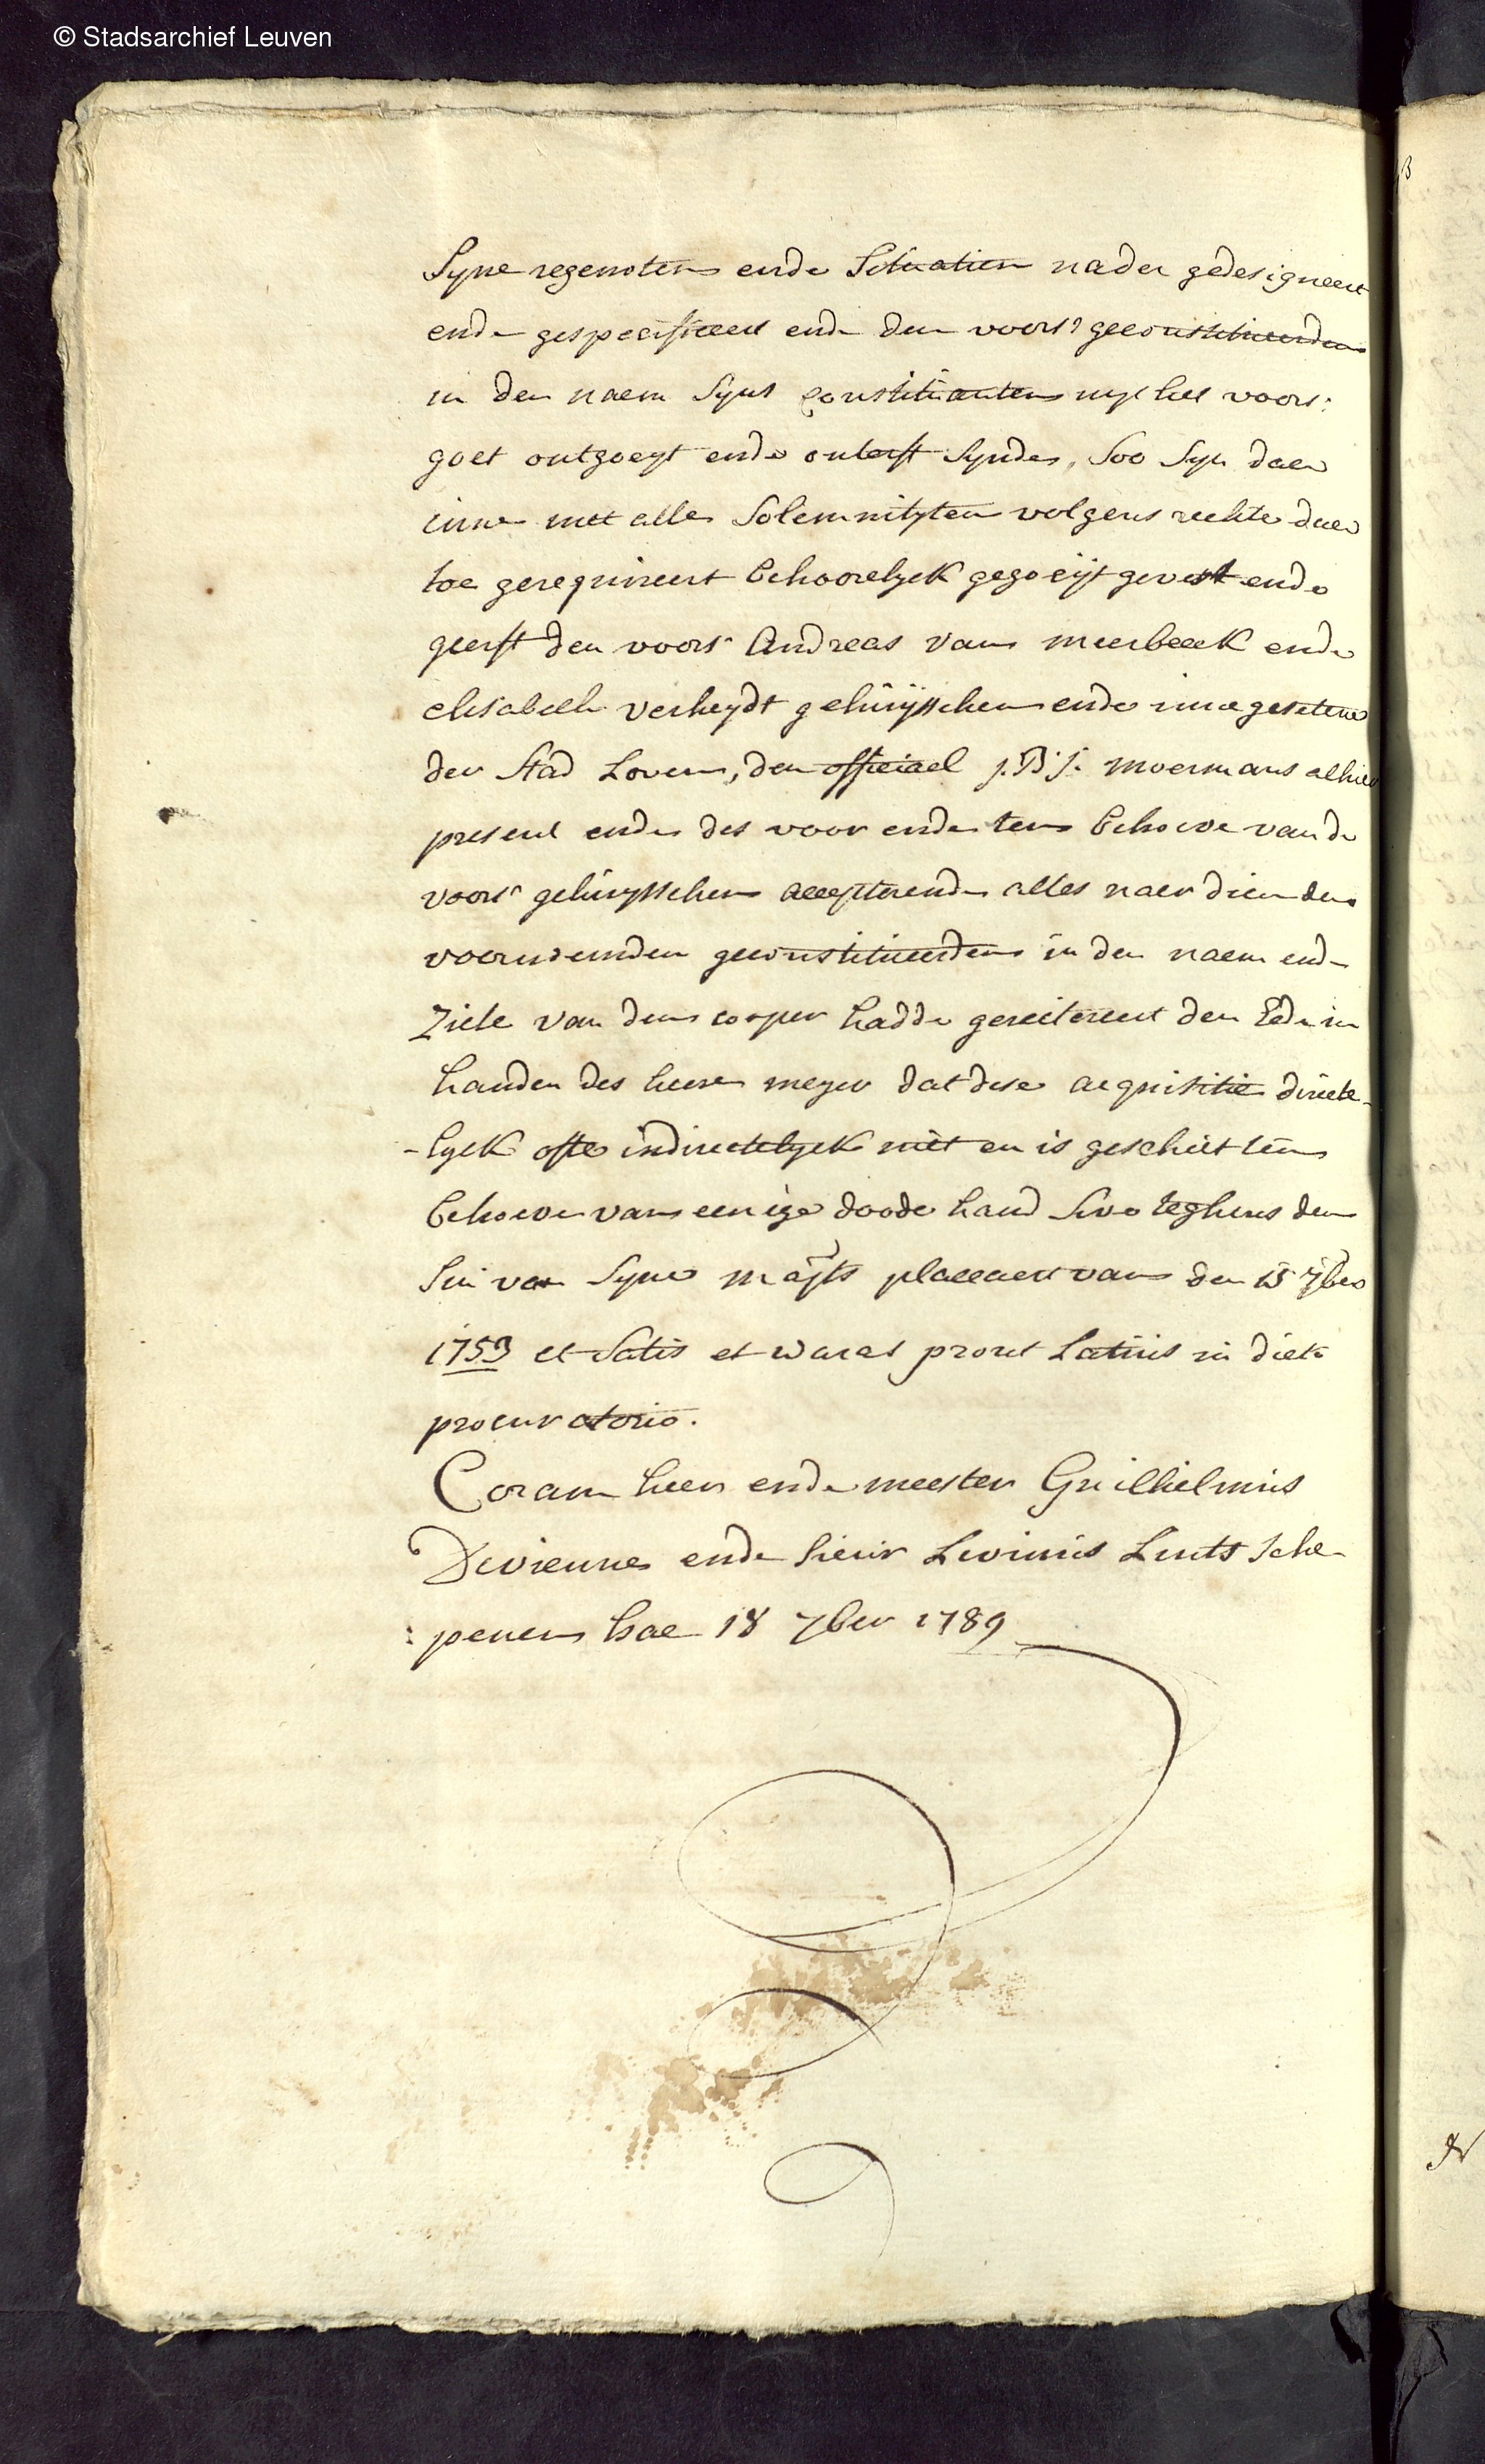 © Stadsarchief Leuven
Syne regenoten ende Situatien nader gedesigneert
ende gespecificeert ende den voors: geconstitueerden
in den naem Syns Constituanten uyt het voors:
goet ontgoeyt ende onterft Synde, Soo Syn daer
inne met alle Solemnityten volgens rechte daer
toe gerequireert behoorelyck gegoeyt gevest ende
geerft den voors: Andreas van meerbeeck ende
elisabeth verheydt gehuysschen ende innegesetene
der Stad Loven, den officiael J: B: J: moermans alhier
present ende des voor ende ten behoeve van de
voors: gehuysschen accepterende alles naer dien den
voernoemden geconstitueerden in den naem ende
Ziele van den coper hadde gereitereert den Eedt in
handen des heere meyer dat dese acquisitie directe-
-lyck ofte indirectelyck niet en is geschiet ten
behoeve van eenige doode hand Sivo teghens den
Sin van Syne maj:ts placcaert van den 15 7ber
1753 et Satis et waras prout Latius in dicto
procuratorio.
Coram heer ende meester Guilhielmus
Devienne ende Sieur Livinus Lints Sche
: penen hac 18 7ber 1789